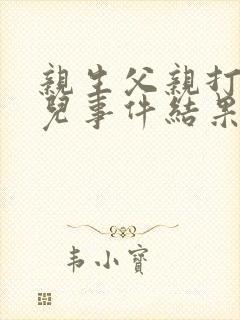 親生父親打
兒事件結果
韦小寶